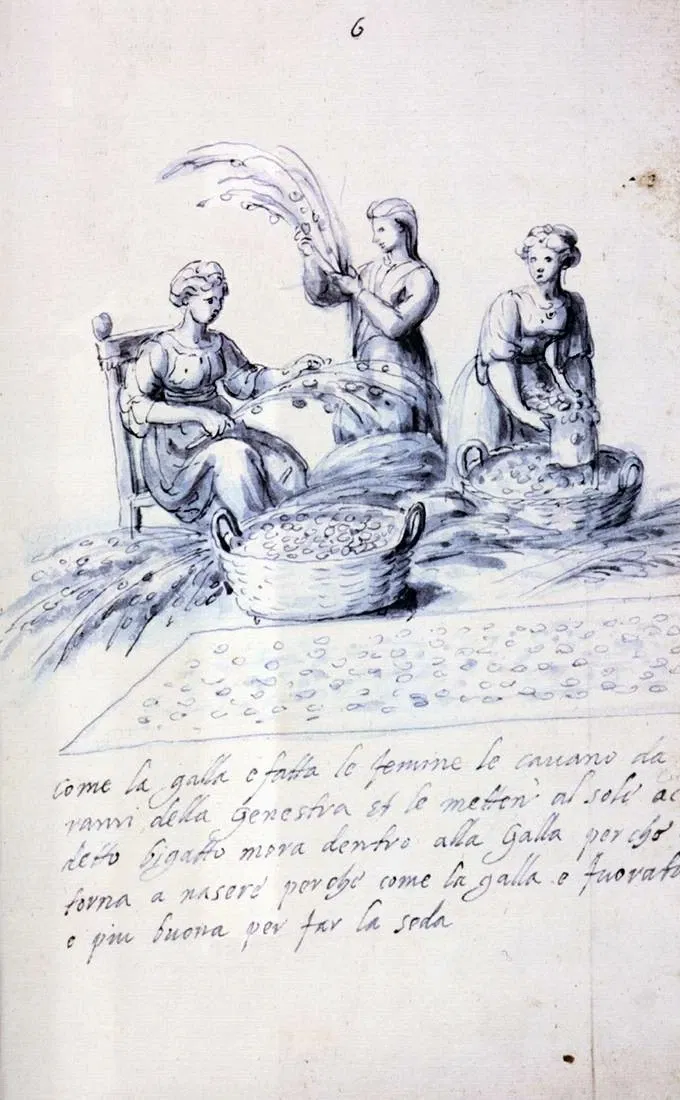 6
come la galla e fatta le femine le cavano da
rami della Genestra et le metten al sole ac
detto bigatto mora dentro alla Galla perche
torna a nascere perche come la galla e fuorata
e piu buona per far la seda